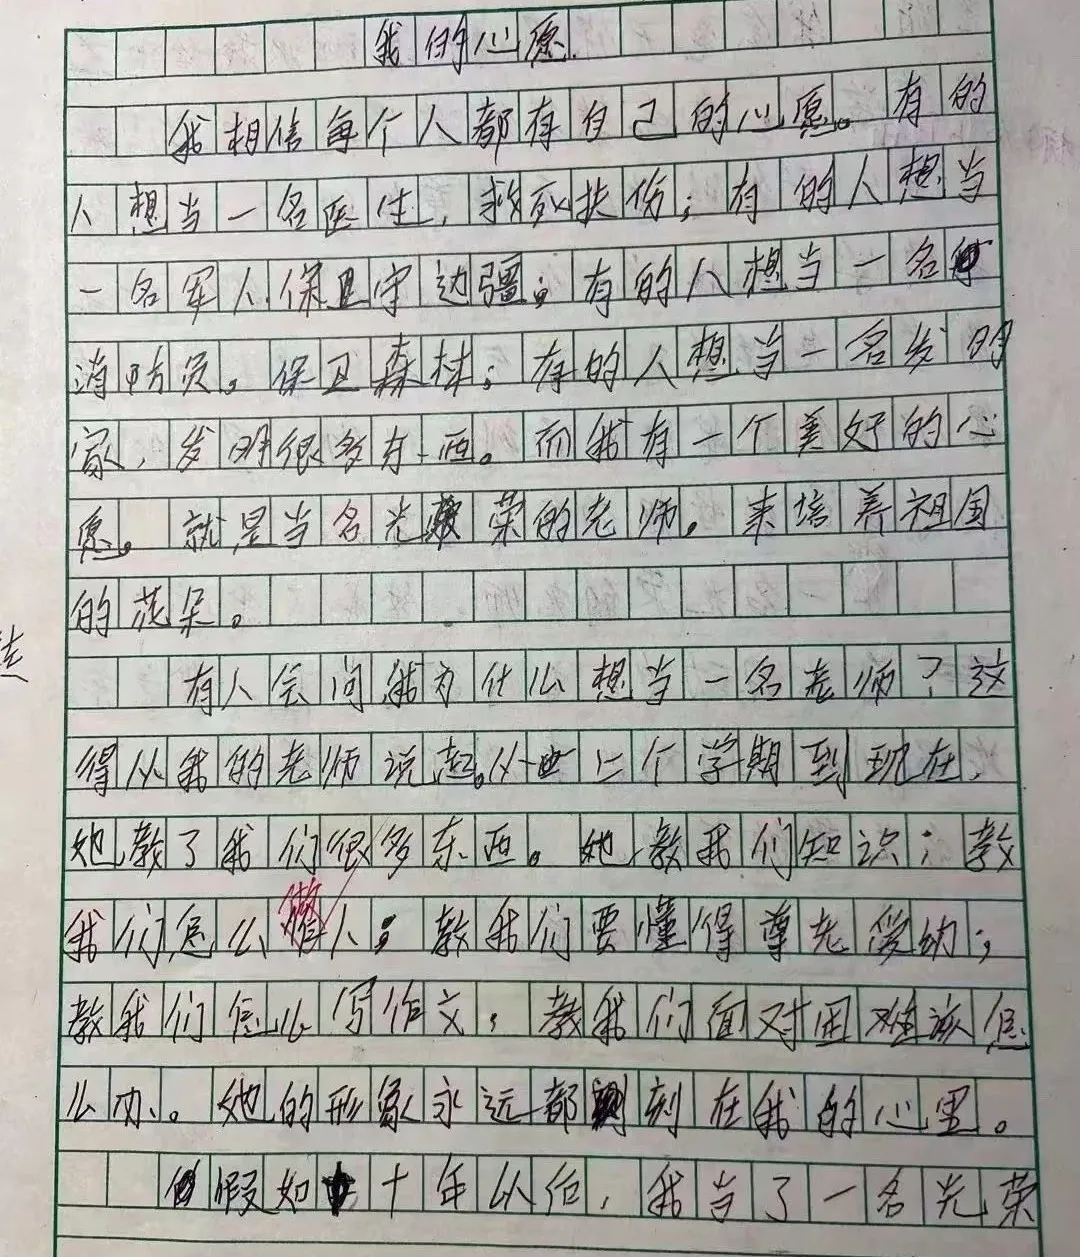 我的心愿
我相信每个人都有自己的心愿。有的
人想当一名医生，救死扶伤；有的人想当
一名军人保卫守边疆；有的人想当一名
消防员。保卫森林；有的人想当一名发明
家，发明很多东西。而我有一个美好的心
愿。就是当名光荣的老师。来培养祖国
的花朵。
有人会问我为什么想当一名老师？这
得从我的老师说起。从一 上个学期到现在，
她教了我们很多东西。她教我们知识；教
我们怎么做人；教我们要懂得尊老爱幼；
教我们怎么写作文；教我们面对困难该怎
么办。她的形象永远都刻在我的心里。
假如十年以后，我当了一名光荣